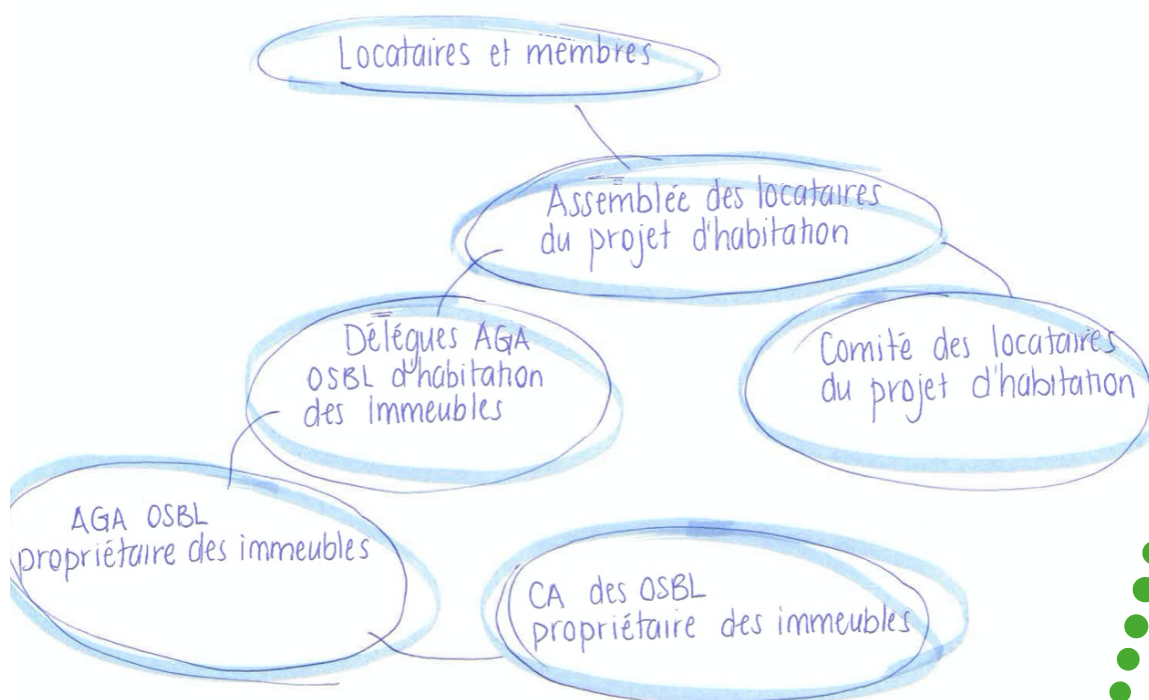 Locataires et membres
Assemblée des locataires
du projet d'habitation
Délégues AGA
OSBL d'habitation
des immeubles
Comité des locataires
du projet d'habitation
AGA OSBL
propriétaire des immeubles
CA des OSBL
propriétaire des immeubles